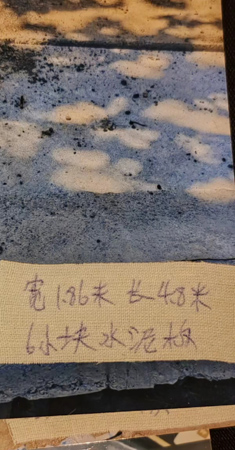 宽1.86米 长4.8米
6小块水泥板